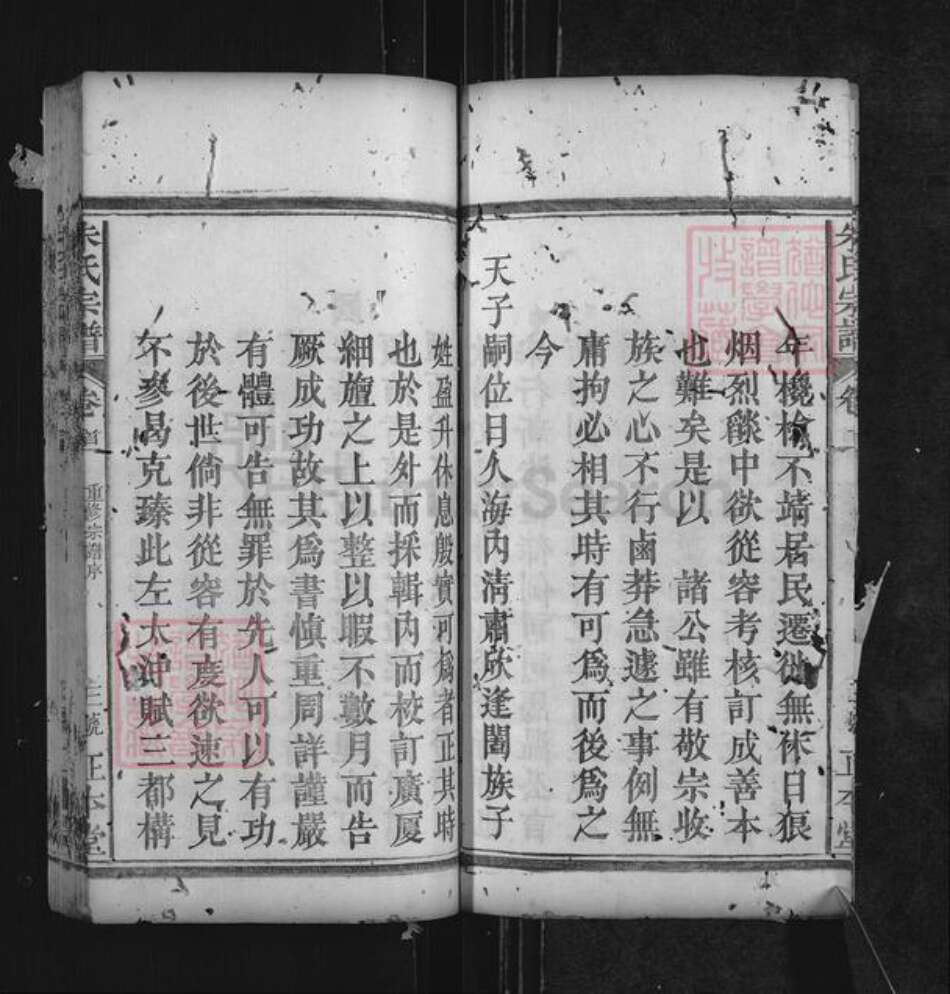 年欃槍不靖居民遷徙無休日狼
烟烈燄中欲從容考核訂成善本
也難矣是以 諸公雖有敬宗收
族之心不行鹵莽急遽之事例無
庸拘必相其時有可爲而後爲之
今
天子嗣位日久海內淸肅欣逢闔族子
姓盈升休息殷實可爲者正其時
也於是外而採輯內而校訂廣厦
細旃之上以整以暇不數月而告
厥成功故其爲書慎重周詳謹嚴
有體可告無罪於先人可以有功
於後世倘非從容有度欲速之見
不參曷克臻此左太沖賦三都構
朱氏宗譜 卷首 重修宗譜序 三號 正本堂